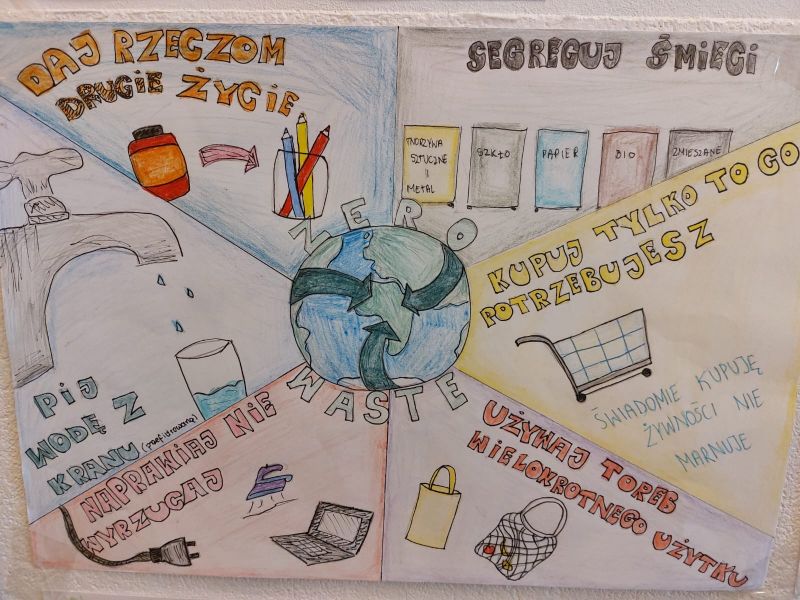 DAJ RZECZOM
DRUGIE ŻYCIE
SEGREGUJ ŚMIECI
TWORZYWA
SZTUCZNE
I
METAL
SZKŁO
PAPIER
BIO
ZMIESZANE
KUPUJ TYLKO TO CO
POTRZEBUJESZ
ŚWIADOMIE KUPUJĘ
ŻYWNOŚCI NIE
MARNUJE
ZERO
WASTE
PIJ
WODĘ Z
KRANU (przefiltrowaną)
NAPRAWIAJ NIE
WYRZUCAJ
UŻYWAJ TOREB
WIELOKROTNEGO UŻYTKU